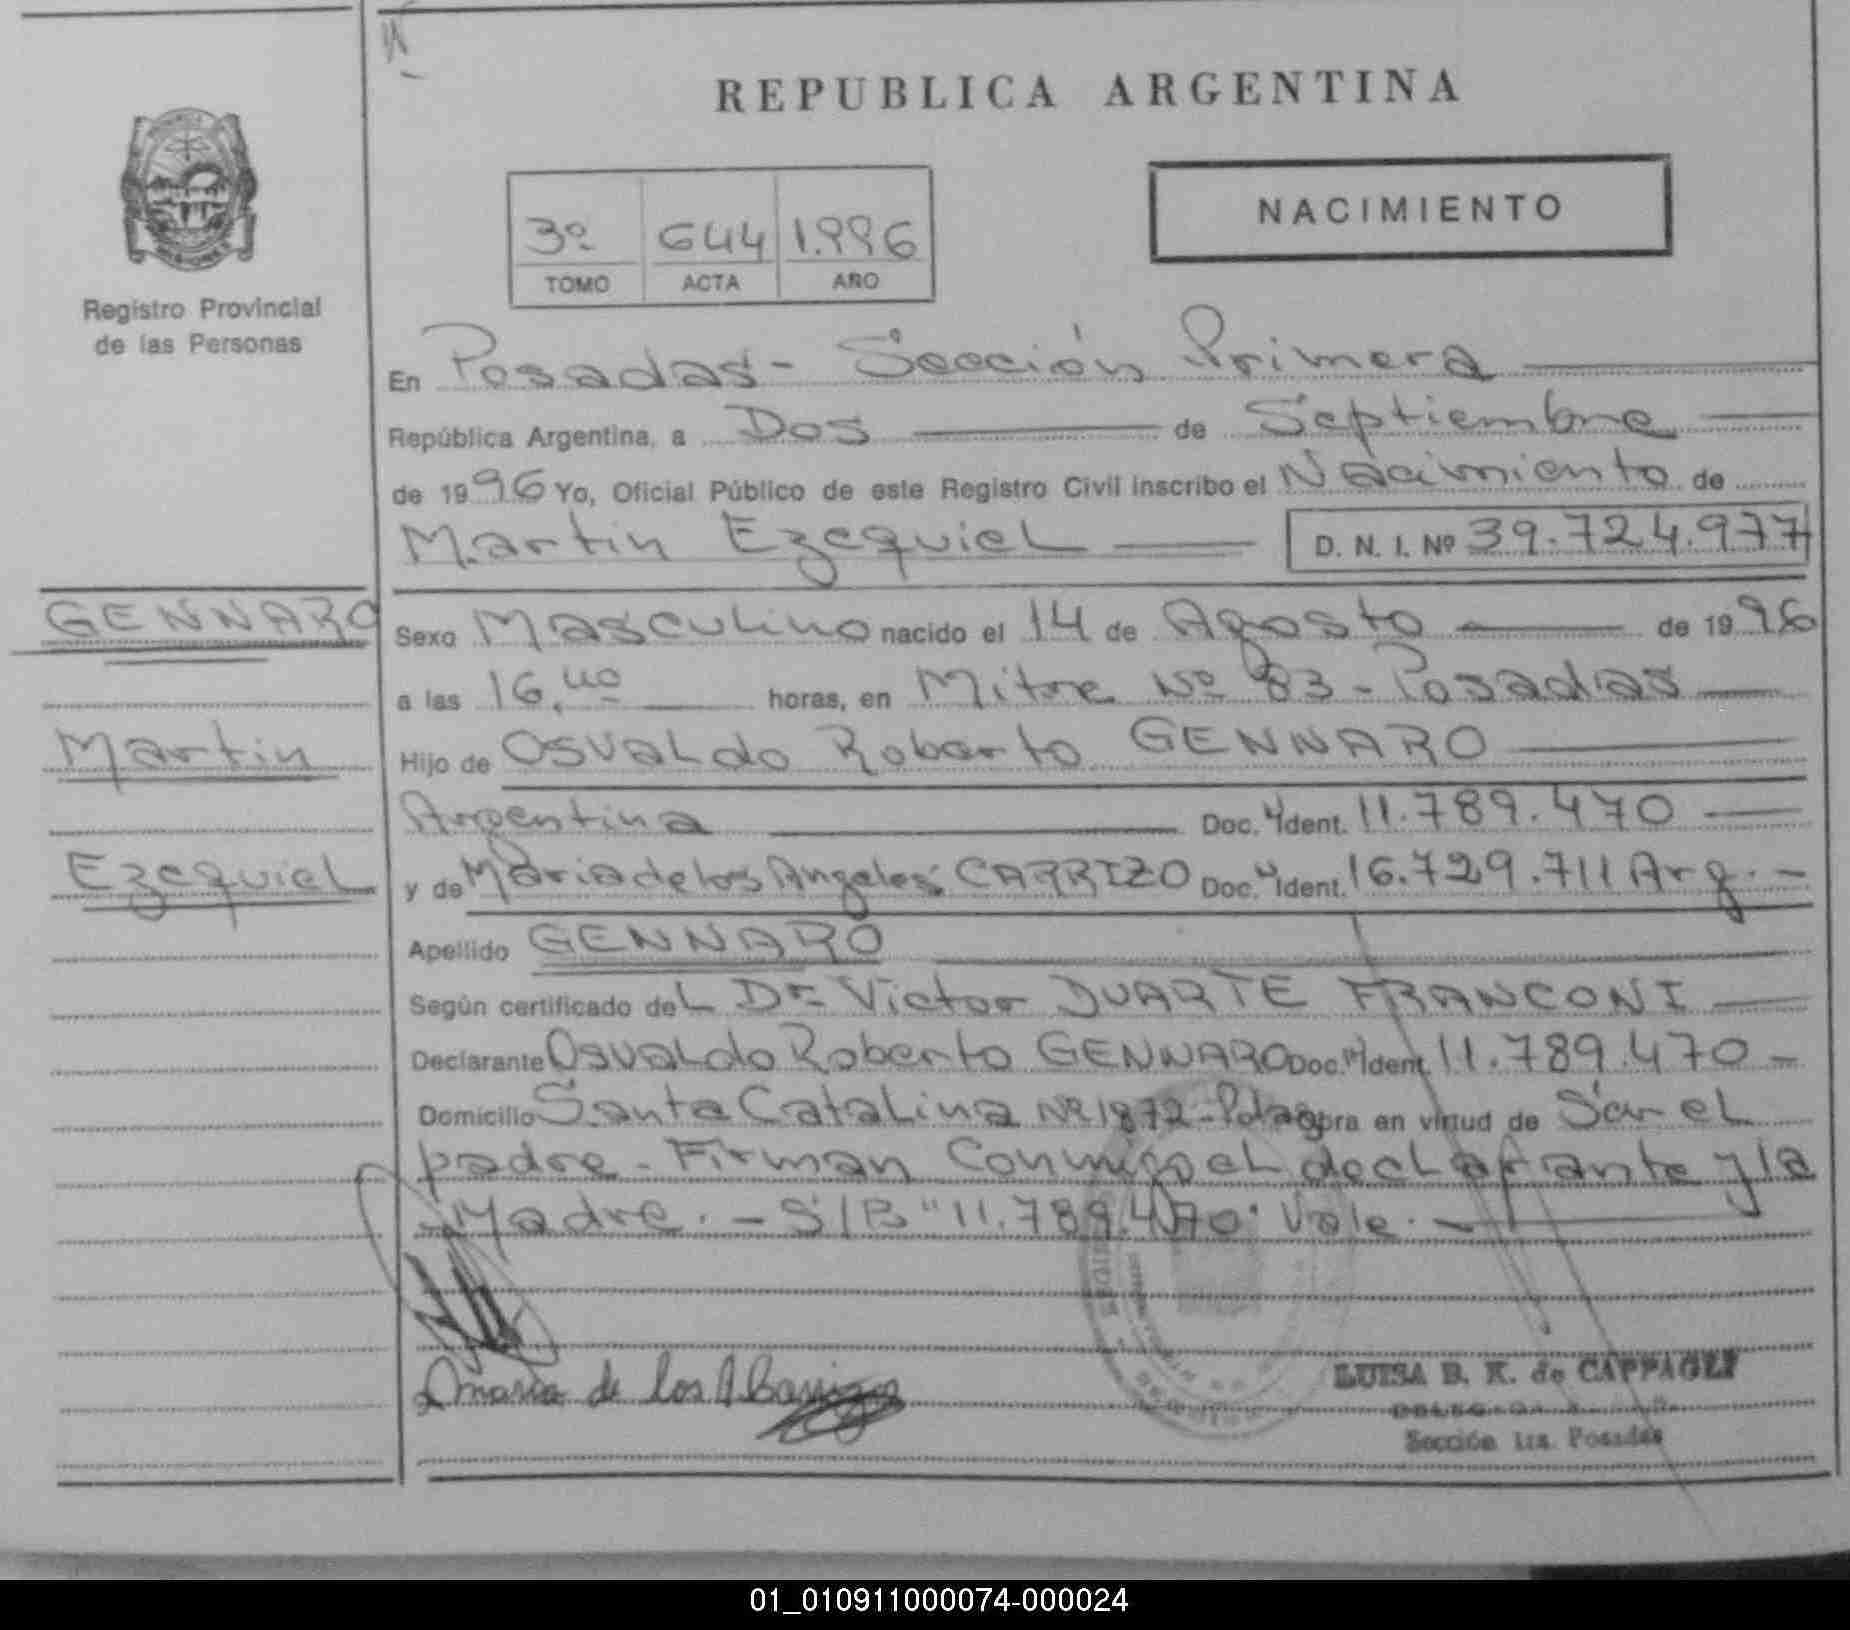 REPUBLICA ARGENTINA
NACIMIENTO
3º 644 1.996
TOMO ACTA AÑO
Registro Provincial
de las Personas
En Posadas - Sección Primera
República Argentina, a Dos de Septiembre
de 1996 Yo, Oficial Público de este Registro Civil inscribo el Nacimiento de
Martin Ezequiel D. N. I. Nº 39.724.977
GENNARO
Sexo Masculino nacido el 14 de Agosto de 1996
a las 16,40 horas, en Mitre Nº 83 - Posadas
Martin
Hijo de Osvaldo Roberto GENNARO
Argentina Doc. Ident. 11.789.470
Ezequiel
y de Maria de los Angeles CARRIZO Doc. Ident. 16.729.711 Arg. -
Apellido GENNARO
Según certificado del Dr Victor DUARTE FRANCONI
Declarante Osvaldo Roberto GENNARO Doc. Ident. 11.789.470 -
Domicilio Santa Catalina Nº 1872 - obra en virtud de Ser el
padre - Firman Conmigo el declarante y la
Madre. - S/B "11.789.470" Vale. -
Maria de los A
LUISA B. K. de CAPPAGLI
DELEGADA
Sección 1ra. Posadas
01_010911000074-000024